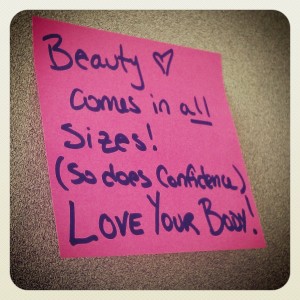 Beauty ♡
comes in all
sizes!
(So does Confidence)
LOVE YOUR BODY!